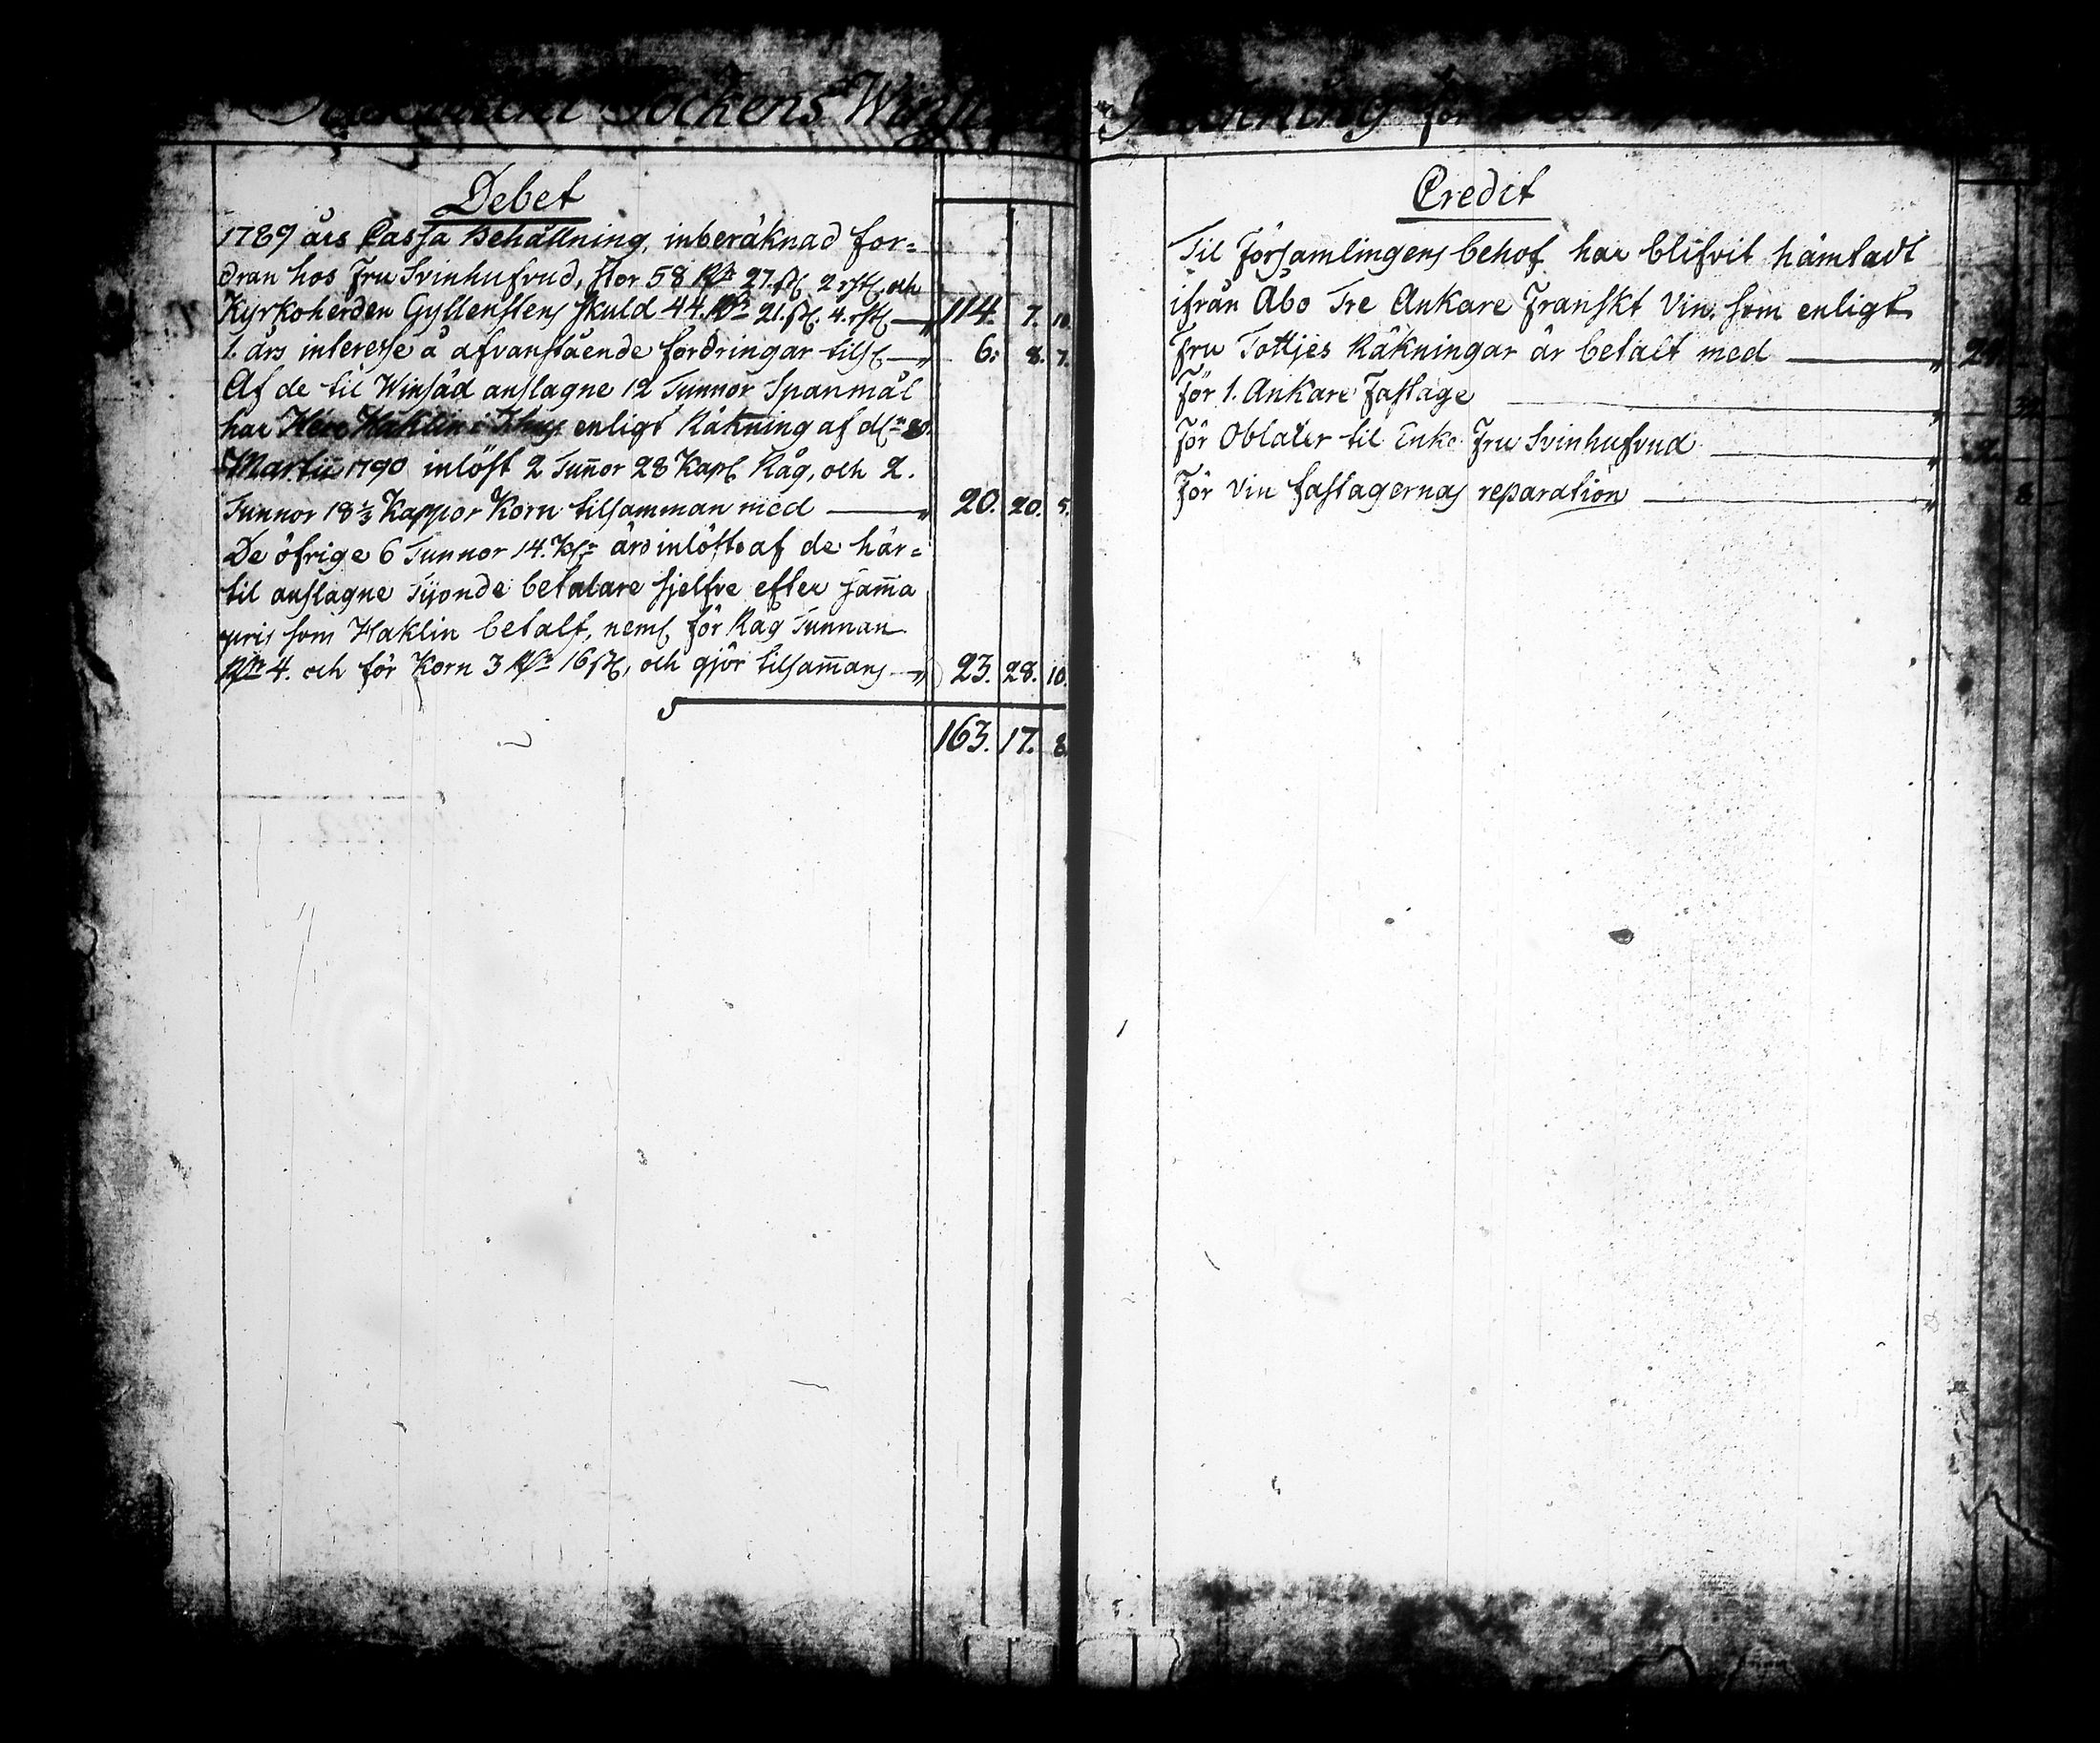 Sockens
Räkning för
Debet
1789 års Cassa Behållning, inberäknad for=
dran hos Fru Svinhufvud, stor 58 Rdr 27. sk. 2 rst. och
Kyrkoherden Gyllenstens skuld 44. Rdr 21. sk. 4. rst. — " 114. 7. 10
1. års interesse å afvanstående fordringar tills. — " 6. 8. 7.
Af de til Winsäd anslagne 12 Tunnor Spanmål
har Herr Haklin enligt Räkning af d.
Martii 1790 inlöst 2 Tunnor 28 Kapl Råg, och 2.
Tunnor 18 1/3 Kappor Korn tilsamman med — " 20. 20. 5.
De öfrige 6 Tunnor 14. Kpr äro inlöste af de här=
til anslagne Tijonde betalare sjelfve efter samma
pris som Haklin betalt, neml. för Råg Tunnan
Rdr 4. och för Korn 3 Rdr 16 sk, och gjör tilsammans — " 23. 28. 10.
163. 17. 8.
Credit
Til Församlingens behof har blifvit hämtadt
ifrån Åbo Tre Ankare Franskt Vin. som enligt
Fru Tottjes Räkningar är betalt med — "
För 1. Ankare Fastage — "
För Oblater til Enke Fru Svinhufvud — "
För vin fastagernas reparation — " 8